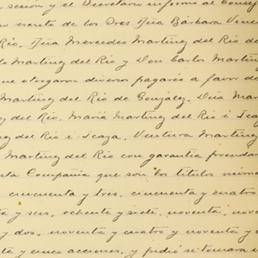 sesion y el Secretario informó al Consej
de los Sres Dña Bárbara
Rio. Dña Mercedes Martinez del Rio de
Martinez del Rio y Don Carlos Martin
que otorgaron diversos pagarés a favor d
Martinez del Rio de Gonzalez. Dña Mar
Rio. Maria Martinez del Rio é Icaz
ez del Rio é Icaza. Ventura Martinez
Martinez del Rio con garantía prendar
esta Compañía que son los titulos núme
cincuenta y tres, cincuenta y cuatro
ta y seis, ochenta y siete, noventa, nove
y dos, noventa y cuatro y noventa y
y unas acciones, y pidió se tomara